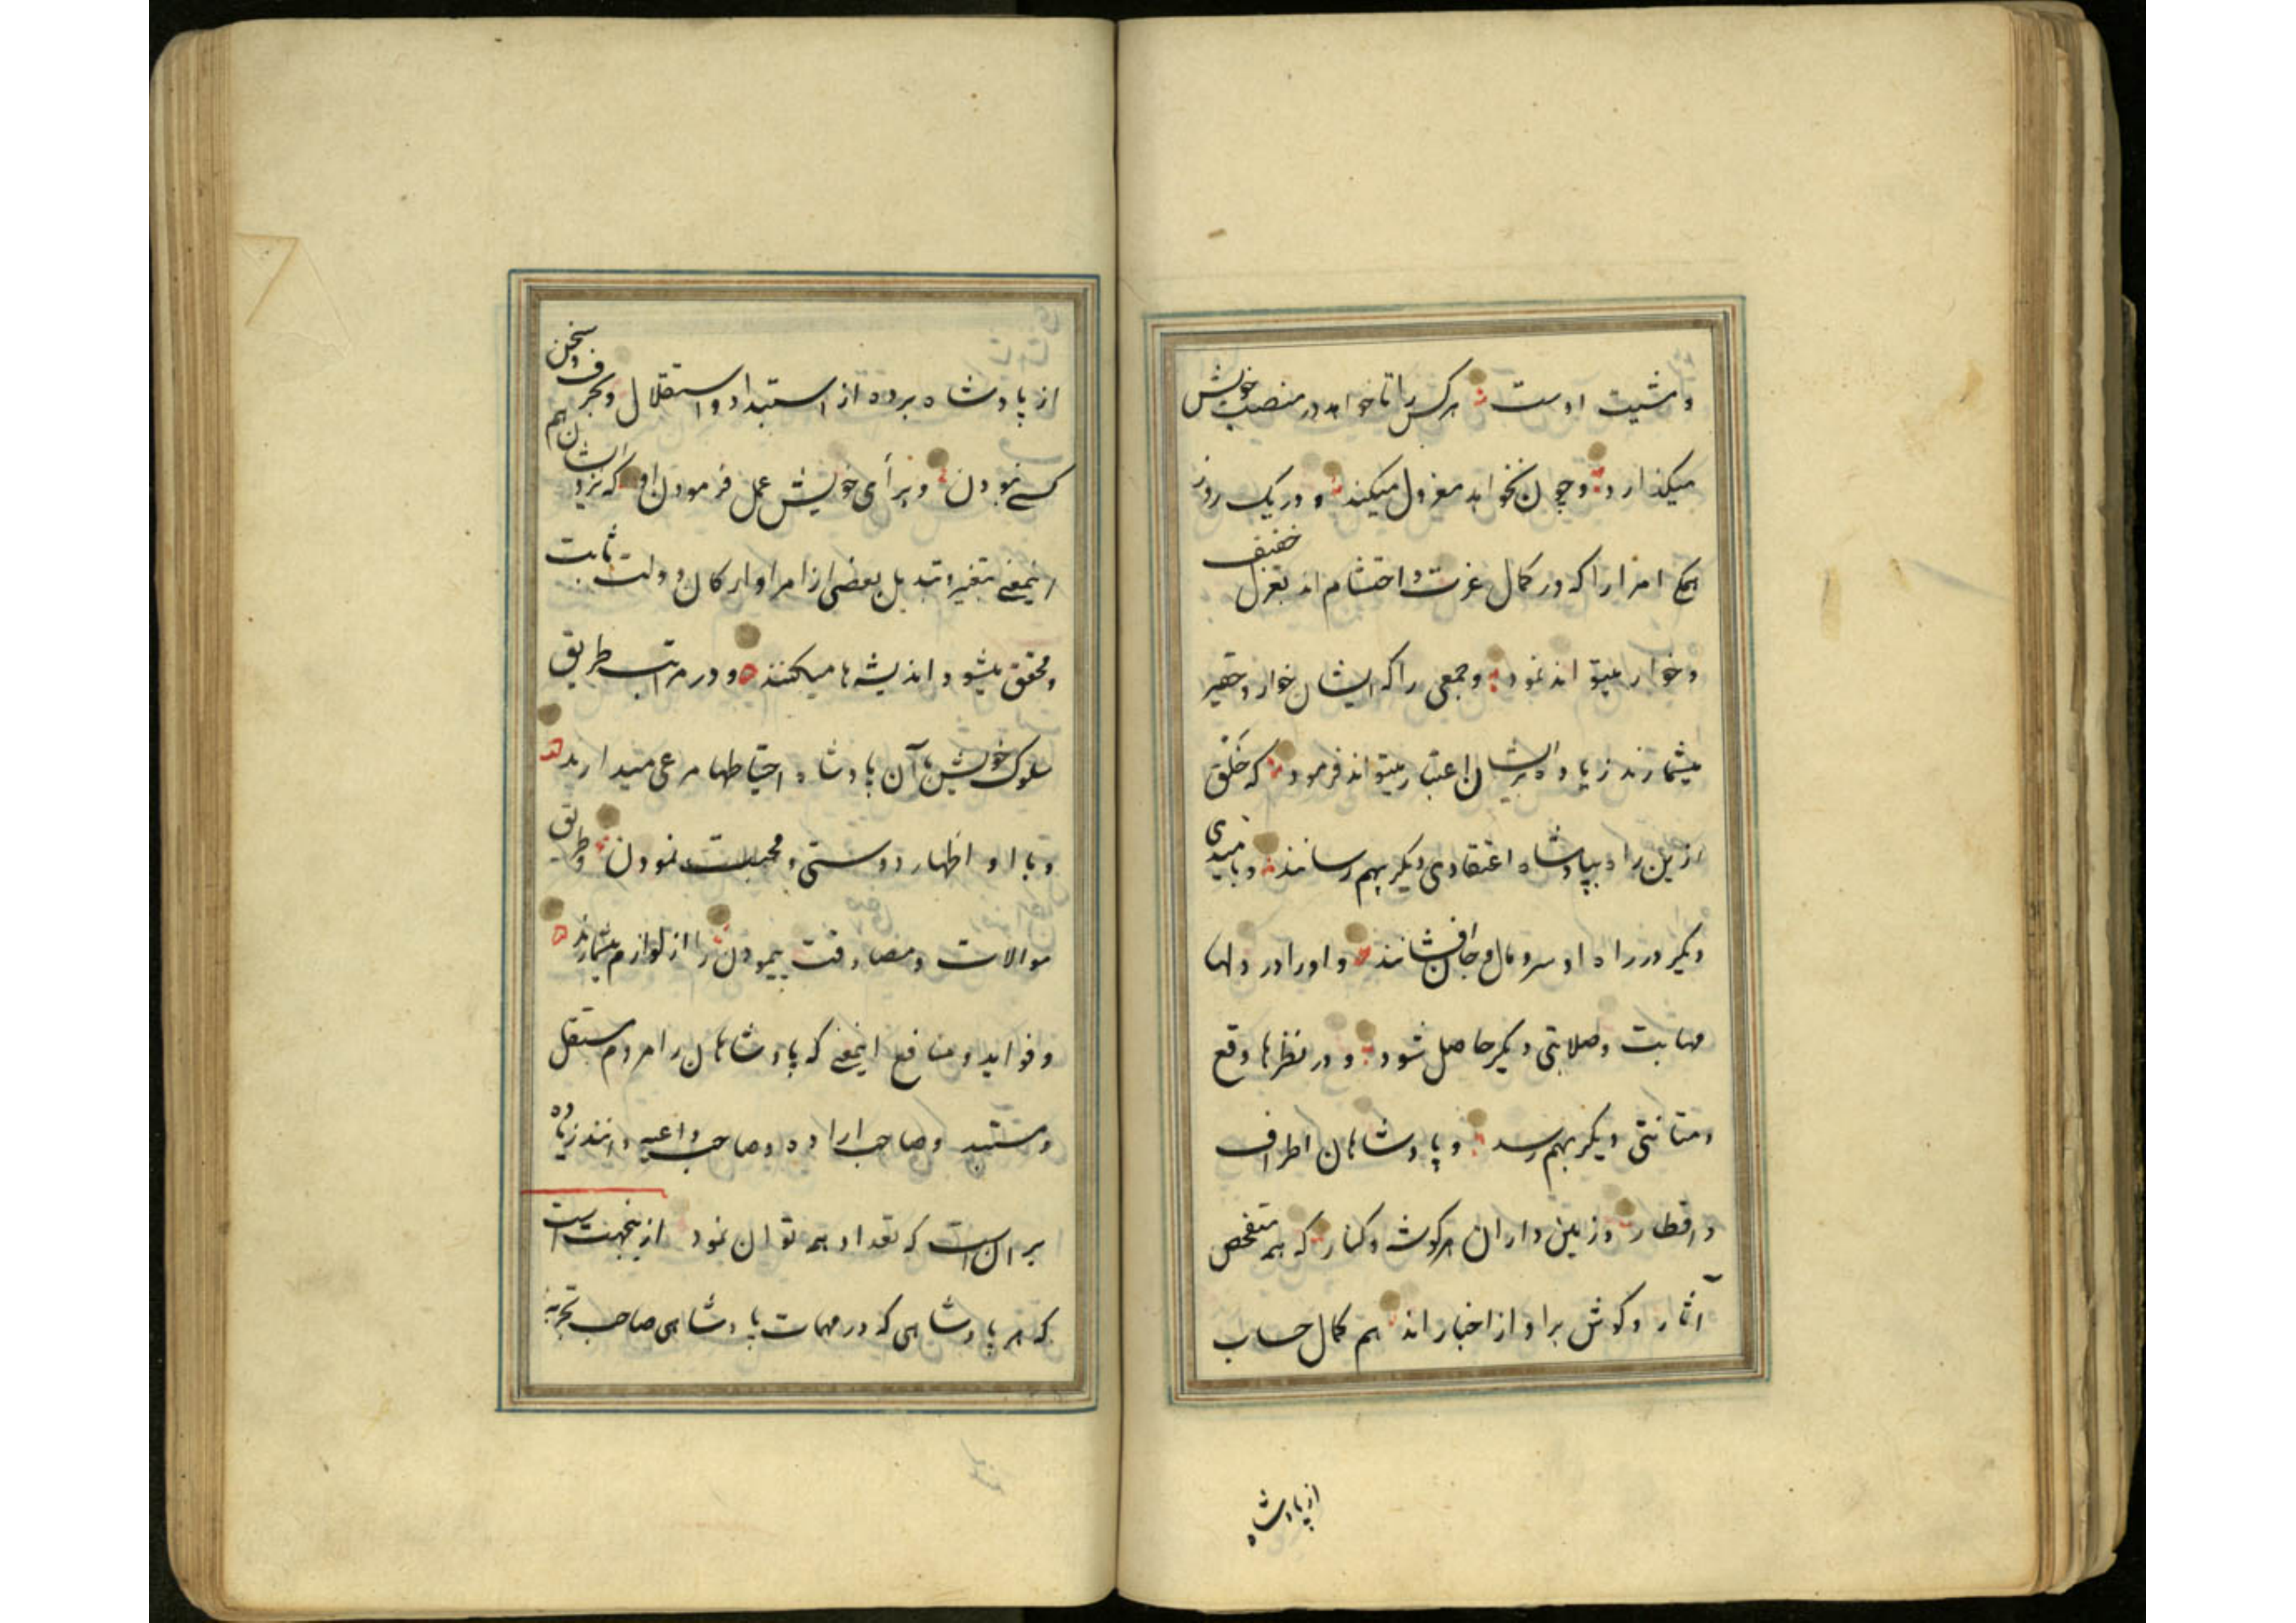 و مشیت اوست هر کس را تا خواهد در منصب خویش
میگذارد و چون نخواهد معزول میکند و در یک روز
همیع امرا را که در کمال عزت و احتشام اند بعزل خفیف
و خوار میتواند نمود و جمعی را که ایشان خوار و حقیر
میشمارند زیاده بر ایشان اعتبار میتواند فرمود که خلق
ازین راه بپادشاه اعتقادی دیگر بهم رسانند و بامیدی
دیگر در راه او سر و مال و جان افشانند و او را در دلها
مهابت و صلابتی دیگر حاصل شود و در نظرها وقع
و متانتی دیگر بهم رسد و پادشاهان اطراف
و اقطار و زمین داران هر گوشه و کنار که همه متفحص
آثار و گوش بر آواز اخبار اند هم کمال حساب
از پادشاه
از پادشاه برده از استبداد و استقلال و بحرف و سخن
کسے نبودن و برأی خویش عمل فرمودن او که نزد ایشان هم
اینمعنے بتغیر و تبدیل بعضی از امرا و ارکان دولت ثابت
و محقق میشود اندیشه ها میکنند و در مراتب طریق
سلوک خویش با آن پادشاه احتیاطها مرعی میدارند
و با او اظهار دوستی و محبت نمودن و طریق
موالات و مصادقت پیمودن را از لوازم میشمارند
و فواید و منافع اینمعنے که پادشاهان را مردم مستقل
و مستبد و صاحب اراده و صاحب داعیه دانند زیاده
بر آن است که تعداد همه توان نمود ازینجهت است
که هر پادشاهی که در مهمات پادشاهی صاحب تجربه